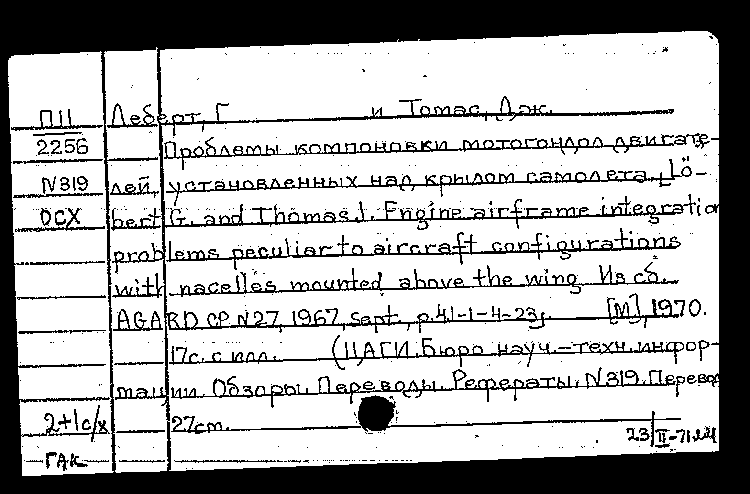 П11 Леберт, Г и Томас, Дж.
2256 Проблемы компоновки мотогондол двигате-
N319 лей, установленных над крылом самолета. Lö-
ОСХ bert G. and Thomas J. Engine airframe integration
problems peculiar to aircraft configurations
with nacelles mounted above the wing. Из сб.
AGARD CP N27, 1967, Sept., p.4.1-1-4-23. [М], 1970.
17с. с илл. (ЦАГИ. Бюро науч.-техн. инфор-
мации. Обзоры. Переводы. Рефераты. N319. Перевод
2+1с/х 27см.
ГАК 23/II-71